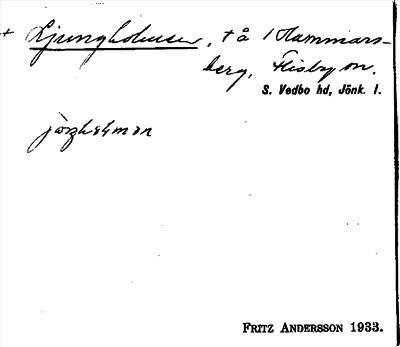 + Ljungholmen, tå i Hammars-
berg, Flisby sn.
S. Vedbo hd, Jönk. l.
FRITZ ANDERSSON 1933.